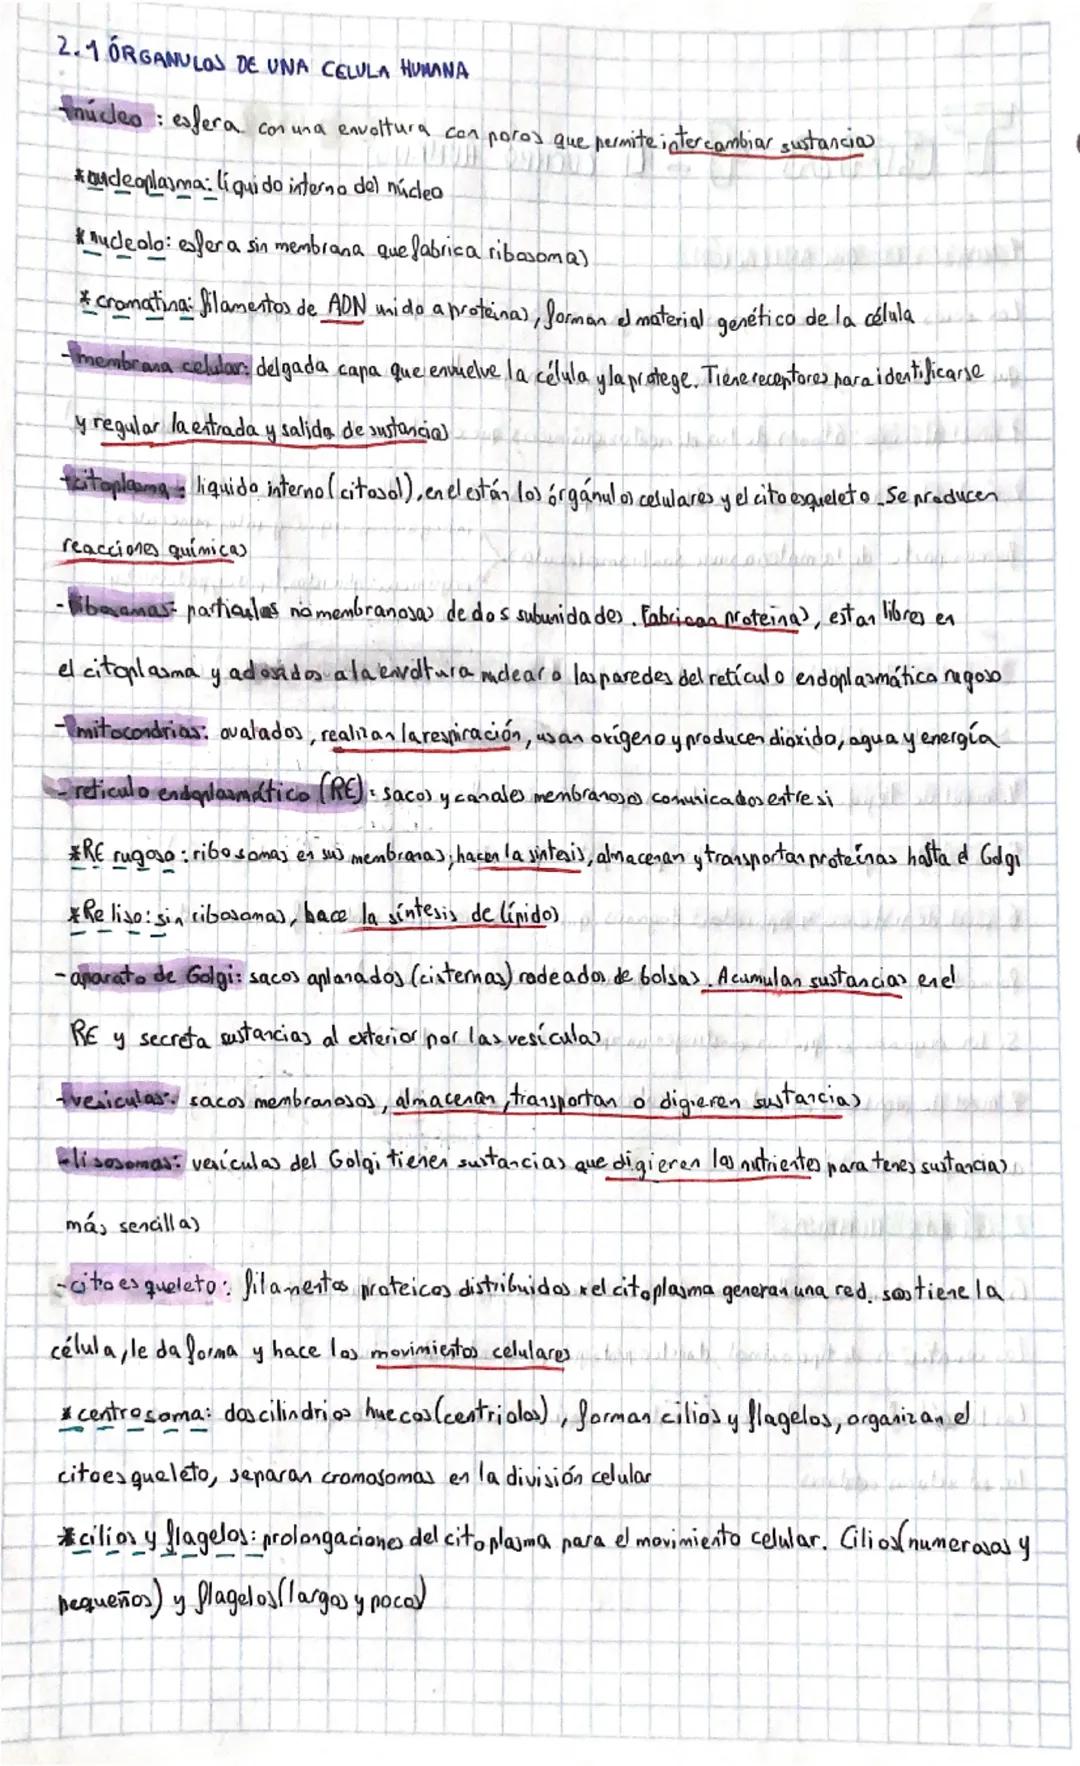 2.1 ÓRGANULOS DE UNA CELULA HUMANA
-núcleo : esfera con una envoltura con poros que permite intercambiar sustancias
*nucleoplasma: líquido interno del núcleo
*nucleolo: esfera sin membrana que fabrica ribosomas
*cromatina: filamentos de ADN unido a proteínas, forman el material genético de la célula
-membrana celular: delgada capa que envuelve la célula y la protege. Tiene receptores para identificarse
y regular la entrada y salida de sustancias
-citoplasma : liquido interno (citosol), en el están los órgánulos celulares y el citoesqueleto. Se producen
reacciones químicas
-ribosomas: particulas no membranosas de dos subunidades. Fabrican proteinas, estan libres en
el citoplasma y adosados a la envoltura nuclear o las paredes del retículo endoplasmática rugoso
-mitocondrias: ovalados, realizan la respiración, usan oxígeno y producen dioxido, agua y energía
-reticulo endoplasmático (RE): sacos y canales membranosos comunicados entre si
*RE rugoso : ribosomas en sus membranas, hacen la síntesis, almacenan y transportan proteínas hasta el Golgi
*Re liso: sin ribosomas, hace la síntesis de lípidos
-aparato de Golgi: sacos aplanados (cisternas) rodeados de bolsas. Acumulan sustancias en el
RE y secreta sustancias al exterior por las vesículas
-vesiculas: sacos membranosos, almacenan, transportan o digieren sustancias
-lisosomas: vesículas del Golgi tienen sustancias que digieren los nutrientes para tener sustancias
más sencillas
-citoesqueleto: filamentos proteicos distribuidos x el citoplasma generan una red. sostiene la
célula, le da forma y hace los movimientos celulares
*centrosoma: dos cilindrios huecos (centriolos), forman cilios y flagelos, organizan el
citoesqueleto, separan cromosomas en la división celular
*cilios y flagelos: prolongaciones del citoplasma para el movimiento celular. Cilios (numerosos y
pequeños) y flagelos (largos y pocos)